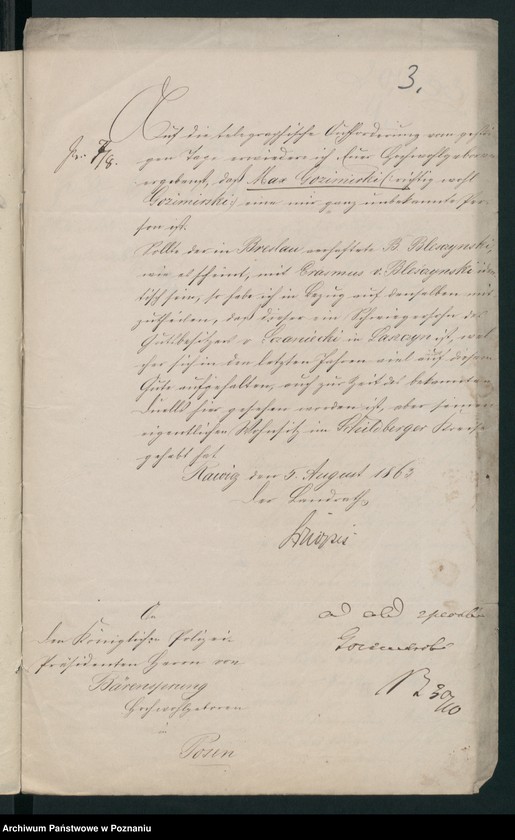 3.
Pr. 7/8.
Auf die telegraphische Aufforderung vom gestri-
gen Tage erwiedere ich Euer Hochwohlgeboren
ergebenst, daß Max Goziminski (richtig wohl
Gozimirski) eine mir ganz unbekannte Per-
son ist.
Sollte der in Breslau verhaftete B. Bleszynski,
wie es scheint, mit Erasmus v. Bleszynski iden-
tisch sein, so habe ich in Bezug auf denselben mit-
zutheilen, daß dieser ein Schwiegersohn des
Gutsbesitzers v Szaniecki in Laszczyn ist, wel-
cher sich in den letzten Jahren viel auf diesem
Gute aufgehalten, auch zur Zeit des bekannten
Duells hier gesehen worden ist, aber seinen
eigentlichen Wohnsitz im Schildberger Kreise
gehabt hat
Rawicz den 5. August 1863
Der Landrath
An
den Königlichen Polizei-
Präsidenten Herrn von
Bärensprung
Hochwohlgeboren
in
Posen
ad acta
30/10
Archiwum Państwowe w Poznaniu